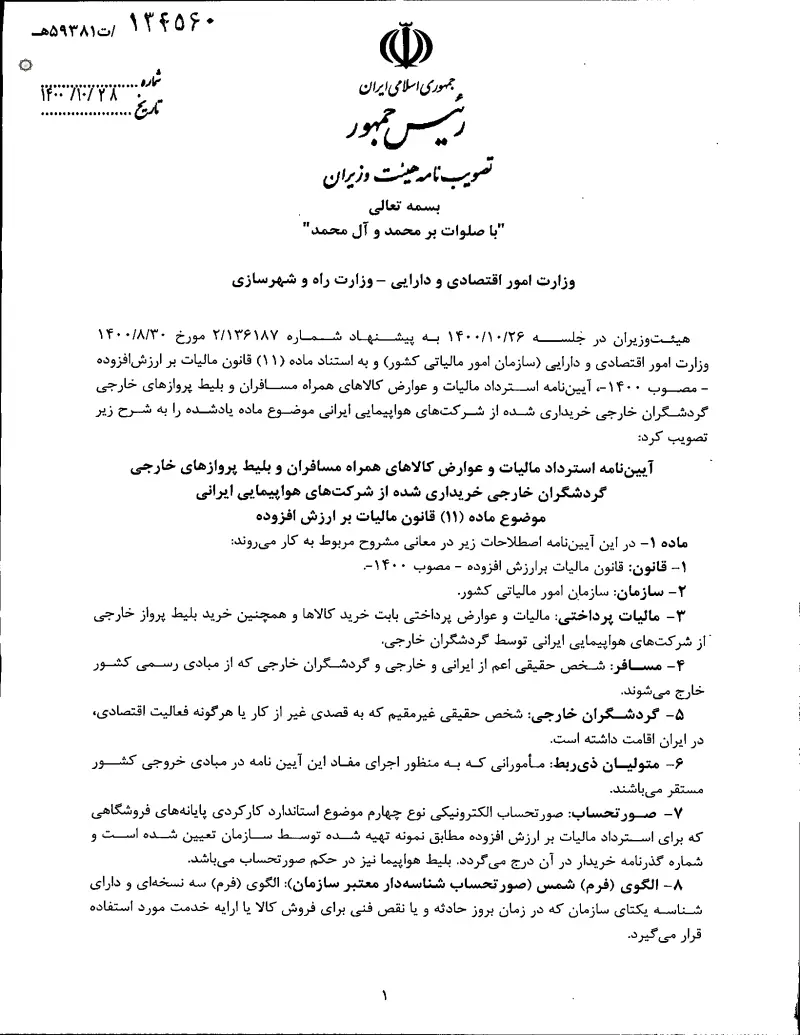 ۱۳۴۵۶۰ /ت۵۹۳۸۱هـ
شماره
۱۴۰۰/۱۰/۲۸
تاریخ
جمهوری اسلامی ایران
رئیس جمهور
تصویب نامه هیئت وزیران
بسمه تعالی
"با صلوات بر محمد و آل محمد"
وزارت امور اقتصادی و دارایی – وزارت راه و شهرسازی
هیئت‌وزیران در جلسه ۱۴۰۰/۱۰/۲۶ به پیشنهاد شماره ۲/۱۳۶۱۸۷ مورخ ۱۴۰۰/۸/۳۰
وزارت امور اقتصادی و دارایی (سازمان امور مالیاتی کشور) و به استناد ماده (۱۱) قانون مالیات بر ارزش‌افزوده
– مصوب ۱۴۰۰-، آیین‌نامه استرداد مالیات و عوارض کالاهای همراه مسافران و بلیط پروازهای خارجی
گردشگران خارجی خریداری شده از شرکت‌های هواپیمایی ایرانی موضوع ماده یادشده را به شرح زیر
تصویب کرد:
آیین‌نامه استرداد مالیات و عوارض کالاهای همراه مسافران و بلیط پروازهای خارجی
گردشگران خارجی خریداری شده از شرکت‌های هواپیمایی ایرانی
موضوع ماده (۱۱) قانون مالیات بر ارزش افزوده
ماده ۱– در این آیین‌نامه اصطلاحات زیر در معانی مشروح مربوط به کار می‌روند:
۱– قانون: قانون مالیات برارزش افزوده – مصوب ۱۴۰۰-.
۲– سازمان: سازمان امور مالیاتی کشور.
۳– مالیات پرداختی: مالیات و عوارض پرداختی بابت خرید کالاها و همچنین خرید بلیط پرواز خارجی
از شرکت‌های هواپیمایی ایرانی توسط گردشگران خارجی.
۴– مسافر: شخص حقیقی اعم از ایرانی و خارجی و گردشگران خارجی که از مبادی رسمی کشور
خارج می‌شوند.
۵– گردشگران خارجی: شخص حقیقی غیرمقیم که به قصدی غیر از کار یا هرگونه فعالیت اقتصادی،
در ایران اقامت داشته است.
۶– متولیان ذی‌ربط: مأمورانی که به منظور اجرای مفاد این آیین نامه در مبادی خروجی کشور
مستقر می‌باشند.
۷– صورتحساب: صورتحساب الکترونیکی نوع چهارم موضوع استاندارد کارکردی پایانه‌های فروشگاهی
که برای استرداد مالیات بر ارزش افزوده مطابق نمونه تهیه شده توسط سازمان تعیین شده است و
شماره گذرنامه خریدار در آن درج می‌گردد. بلیط هواپیما نیز در حکم صورتحساب می‌باشد.
۸– الگوی (فرم) شمس (صورتحساب شناسه‌دار معتبر سازمان): الگوی (فرم) سه نسخه‌ای و دارای
شناسه یکتای سازمان که در زمان بروز حادثه و یا نقص فنی برای فروش کالا یا ارایه خدمت مورد استفاده
قرار می‌گیرد.
۱